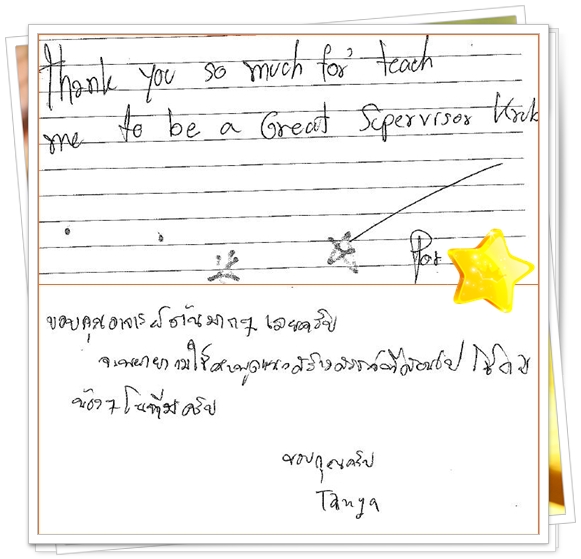 Thank you so much for' teach
me to be a Great Sepervisor Krub
Por
ขอบคุณอาจารย์ มากๆ เลยครับ
จะพยายามใช้คำพูด
น้องๆ ในทีมครับ
ขอบคุณครับ
Tanya